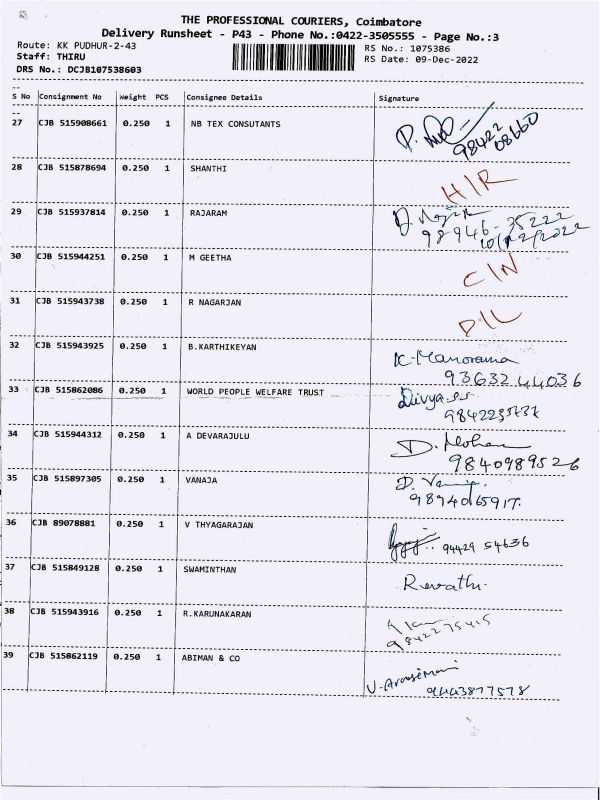 THE PROFESSIONAL COURIERS, Coimbatore
Delivery Runsheet - P43 - Phone No.:0422-3505555 - Page No.:3
Route: KK PUDHUR-2-43 RS No.: 1075386
Staff: THIRU RS Date: 09-Dec-2022
DRS No.: DCJB107538603
S No Consignment No Weight PCS Consignee Details Signature
27 CJB 515908661 0.250 1 NB TEX CONSUTANTS
98422 08660
28 CJB 515878694 0.250 1 SHANTHI H/R
29 CJB 515937814 0.250 1 RAJARAM
98946-35222
10/12/2022
30 CJB 515944251 0.250 1 M GEETHA C/N
31 CJB 515943738 0.250 1 R NAGARJAN D/L
32 CJB 515943925 0.250 1 B.KARTHIKEYAN K. Manorama
9363244036
33 CJB 515862086 0.250 1 WORLD PEOPLE WELFARE TRUST Divya
34 CJB 515944312 0.250 1 A DEVARAJULU D. Mohan
9840989526
35 CJB 515897305 0.250 1 VANAJA
9894065917.
36 CJB 89078881 0.250 1 V THYAGARAJAN 94429 54636
37 CJB 515849128 0.250 1 SWAMINTHAN Revathi.
38 CJB 515943916 0.250 1 R.KARUNAKARAN
9842275415
39 CJB 515862119 0.250 1 ABIMAN & CO
9443877578